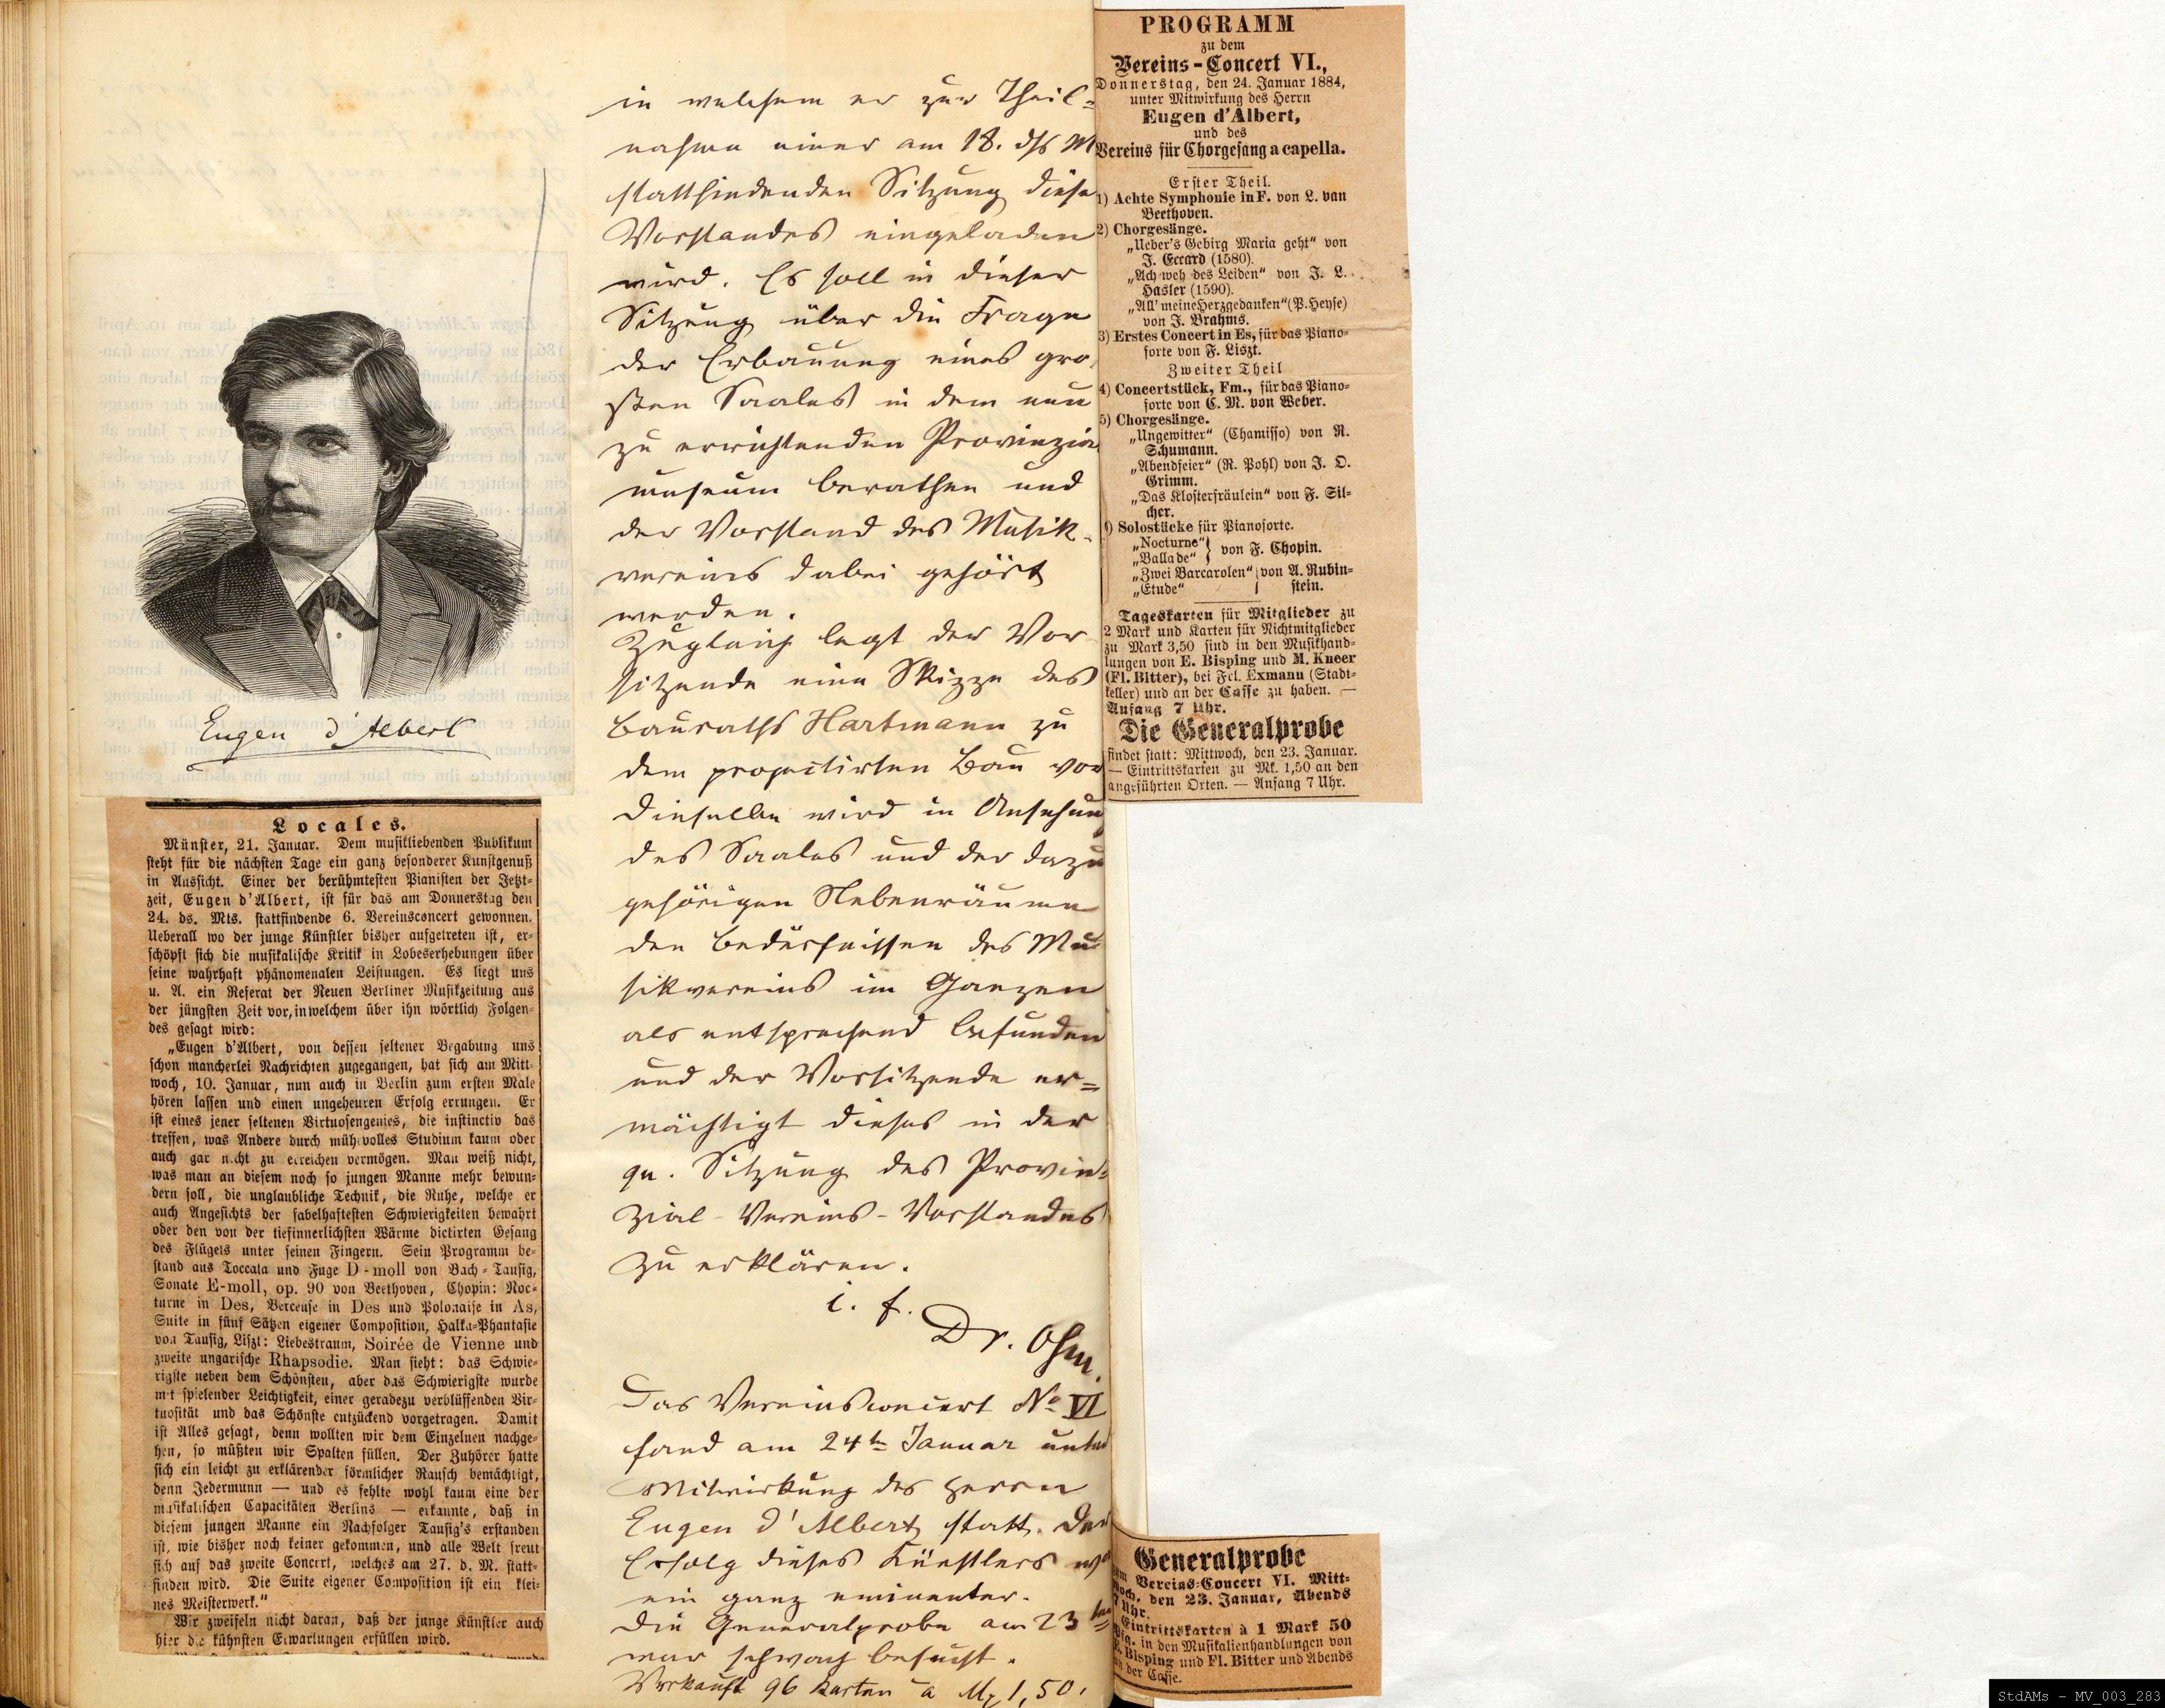 Eugen d'Albert
Locales.
Münster, 21. Januar. Dem musikliebenden Publikum
steht für die nächsten Tage ein ganz besonderer Kunstgenuß
in Aussicht. Einer der berühmtesten Pianisten der Jetzt-
zeit, Eugen d'Albert, ist für das am Donnerstag den
24. ds. Mts. stattfindende 6. Vereinsconcert gewonnen.
Ueberall wo der junge Künstler bisher aufgetreten ist, er-
schöpft sich die musikalische Kritik in Lobeserhebungen über
seine wahrhaft phänomenalen Leistungen. Es liegt uns
u. A. ein Referat der Neuen Berliner Musikzeitung aus
der jüngsten Zeit vor, in welchem über ihn wörtlich Folgen-
des gesagt wird:
„Eugen d'Albert, von dessen seltener Begabung uns
schon mancherlei Nachrichten zugegangen, hat sich am Mitt-
woch, 10. Januar, nun auch in Berlin zum ersten Male
hören lassen und einen ungeheuren Erfolg errungen. Er
ist eines jener seltenen Virtuosengenies, die instinctiv das
treffen, was Andere durch mühevolles Studium kaum oder
auch gar nicht zu erreichen vermögen. Man weiß nicht,
was man an diesem noch so jungen Manne mehr bewun-
dern soll, die unglaubliche Technik, die Ruhe, welche er
auch Angesichts der fabelhaftesten Schwierigkeiten bewahrt
oder den von der tiefinnerlichsten Wärme dictirten Gesang
des Flügels unter seinen Fingern. Sein Programm be-
stand aus Toccata und Fuge D-moll von Bach-Tausig,
Sonate E-moll, op. 90 von Beethoven, Chopin: Noc-
turne in Des, Berceuse in Des und Polonaise in As,
Suite in fünf Sätzen eigener Composition, Halka-Phantasie
von Tausig, Liszt: Liebestraum, Soirée de Vienne und
zweite ungarische Rhapsodie. Man sieht: das Schwie-
rigste neben dem Schönsten, aber das Schwierigste wurde
mit spielender Leichtigkeit, einer geradezu verblüffenden Vir-
tuosität und das Schönste entzückend vorgetragen. Damit
ist Alles gesagt, denn wollten wir dem Einzelnen nachge-
hen, so müßten wir Spalten füllen. Der Zuhörer hatte
sich ein leicht zu erklärender förmlicher Rausch bemächtigt,
denn Jedermann — und es fehlte wohl kaum eine der
musikalischen Capacitäten Berlins — erkannte, daß in
diesem jungen Manne ein Nachfolger Tausig's erstanden
ist, wie bisher noch keiner gekommen, und alle Welt freut
sich auf das zweite Concert, welches am 27. d. M. statt-
finden wird. Die Suite eigener Composition ist ein klei-
nes Meisterwerk."
Wir zweifeln nicht daran, daß der junge Künstler auch
hier die kühnsten Erwartungen erfüllen wird.
in welchem er zur Theil-
nahme einer am 18. ds M
stattfindenden Sitzung diese
Vorstandes eingeladen
wird. Es soll in dieser
Sitzung über die Frage
der Erbauung eines gro-
ßen Saales in dem neu
zu errichtenden Provinzia
museum berathen und
der Vorstand des Musik-
vereins dabei gehört
werden.
Zugleich legt der Vor-
sitzende eine Skizze des
Bauraths Hartmann zu
dem projectirten Bau vor
dieselbe wird in Ansehun
des Saales und der dazu
gehörigen Nebenräume
den Bedürfnissen des Mu-
sikvereins im Ganzen
als entsprechend befunden
und der Vorsitzende er-
mächtigt dieses in der
qu. Sitzung des Provin-
zial-Vereins-Vorstandes
zu erklären.
i. f.
Dr. Ohm.
Das Vereinsconcert No VI
fand am 24ten Januar unter
Mitwirkung des Herrn
Eugen d'Albert statt. Der
Erfolg dieses Künstlers wa
ein ganz eminenter.
Die Generalprobe am 23ten
war schwach besucht.
Verkauft 96 Karten a Mk 1,50.
PROGRAMM
zu dem
Vereins-Concert VI.,
Donnerstag, den 24. Januar 1884,
unter Mitwirkung des Herrn
Eugen d'Albert,
und des
Vereins für Chorgesang a capella.
Erster Theil.
1) Achte Symphonie in F. von L. van
Beethoven.
2) Chorgesänge.
„Ueber's Gebirg Maria geht" von
J. Eccard (1580).
„Ach weh des Leiden" von J. L.
Hasler (1590).
„All' meine Herzgedanken" (P. Heyse)
von J. Brahms.
3) Erstes Concert in Es, für das Piano-
forte von F. Liszt.
Zweiter Theil
4) Concertstück, Fm., für das Piano-
forte von C. M. von Weber.
5) Chorgesänge.
„Ungewitter" (Chamisso) von R.
Schumann.
„Abendfeier" (R. Pohl) von J. O.
Grimm.
„Das Klosterfräulein" von F. Sil-
cher.
6) Solostücke für Pianoforte.
„Nocturne"
„Ballade" } von F. Chopin.
„Zwei Barcarolen" } von A. Rubin-
„Etude" stein.
Tageskarten für Mitglieder zu
2 Mark und Karten für Nichtmitglieder
zu Mark 3,50 sind in den Musikhand-
lungen von E. Bisping und M. Kneer
(Fl. Bitter), bei Frl. Exmann (Stadt-
keller) und an der Casse zu haben. —
Anfang 7 Uhr.
Die Generalprobe
findet statt: Mittwoch, den 23. Januar.
— Eintrittskarten zu Mk. 1,50 an den
angeführten Orten. — Anfang 7 Uhr.
Generalprobe
zum Vereins-Concert VI. Mitt-
woch, den 23. Januar, Abends
7 Uhr.
Eintrittskarten à 1 Mark 50
Pfg. in den Musikalienhandlungen von
E. Bisping und Fl. Bitter und Abends
an der Casse.
StdAMs - MV_003_283